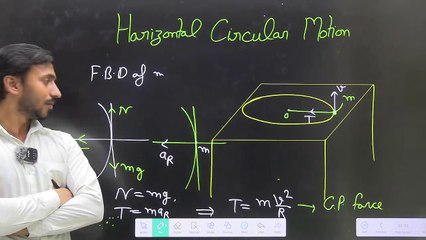 Horizontal Circular Motion
F.B.D of m
N
v
m
o
T
a_R
m
mg
N = mg.
∴ T = ma_R ⇒ T = m v²/R → C.P force